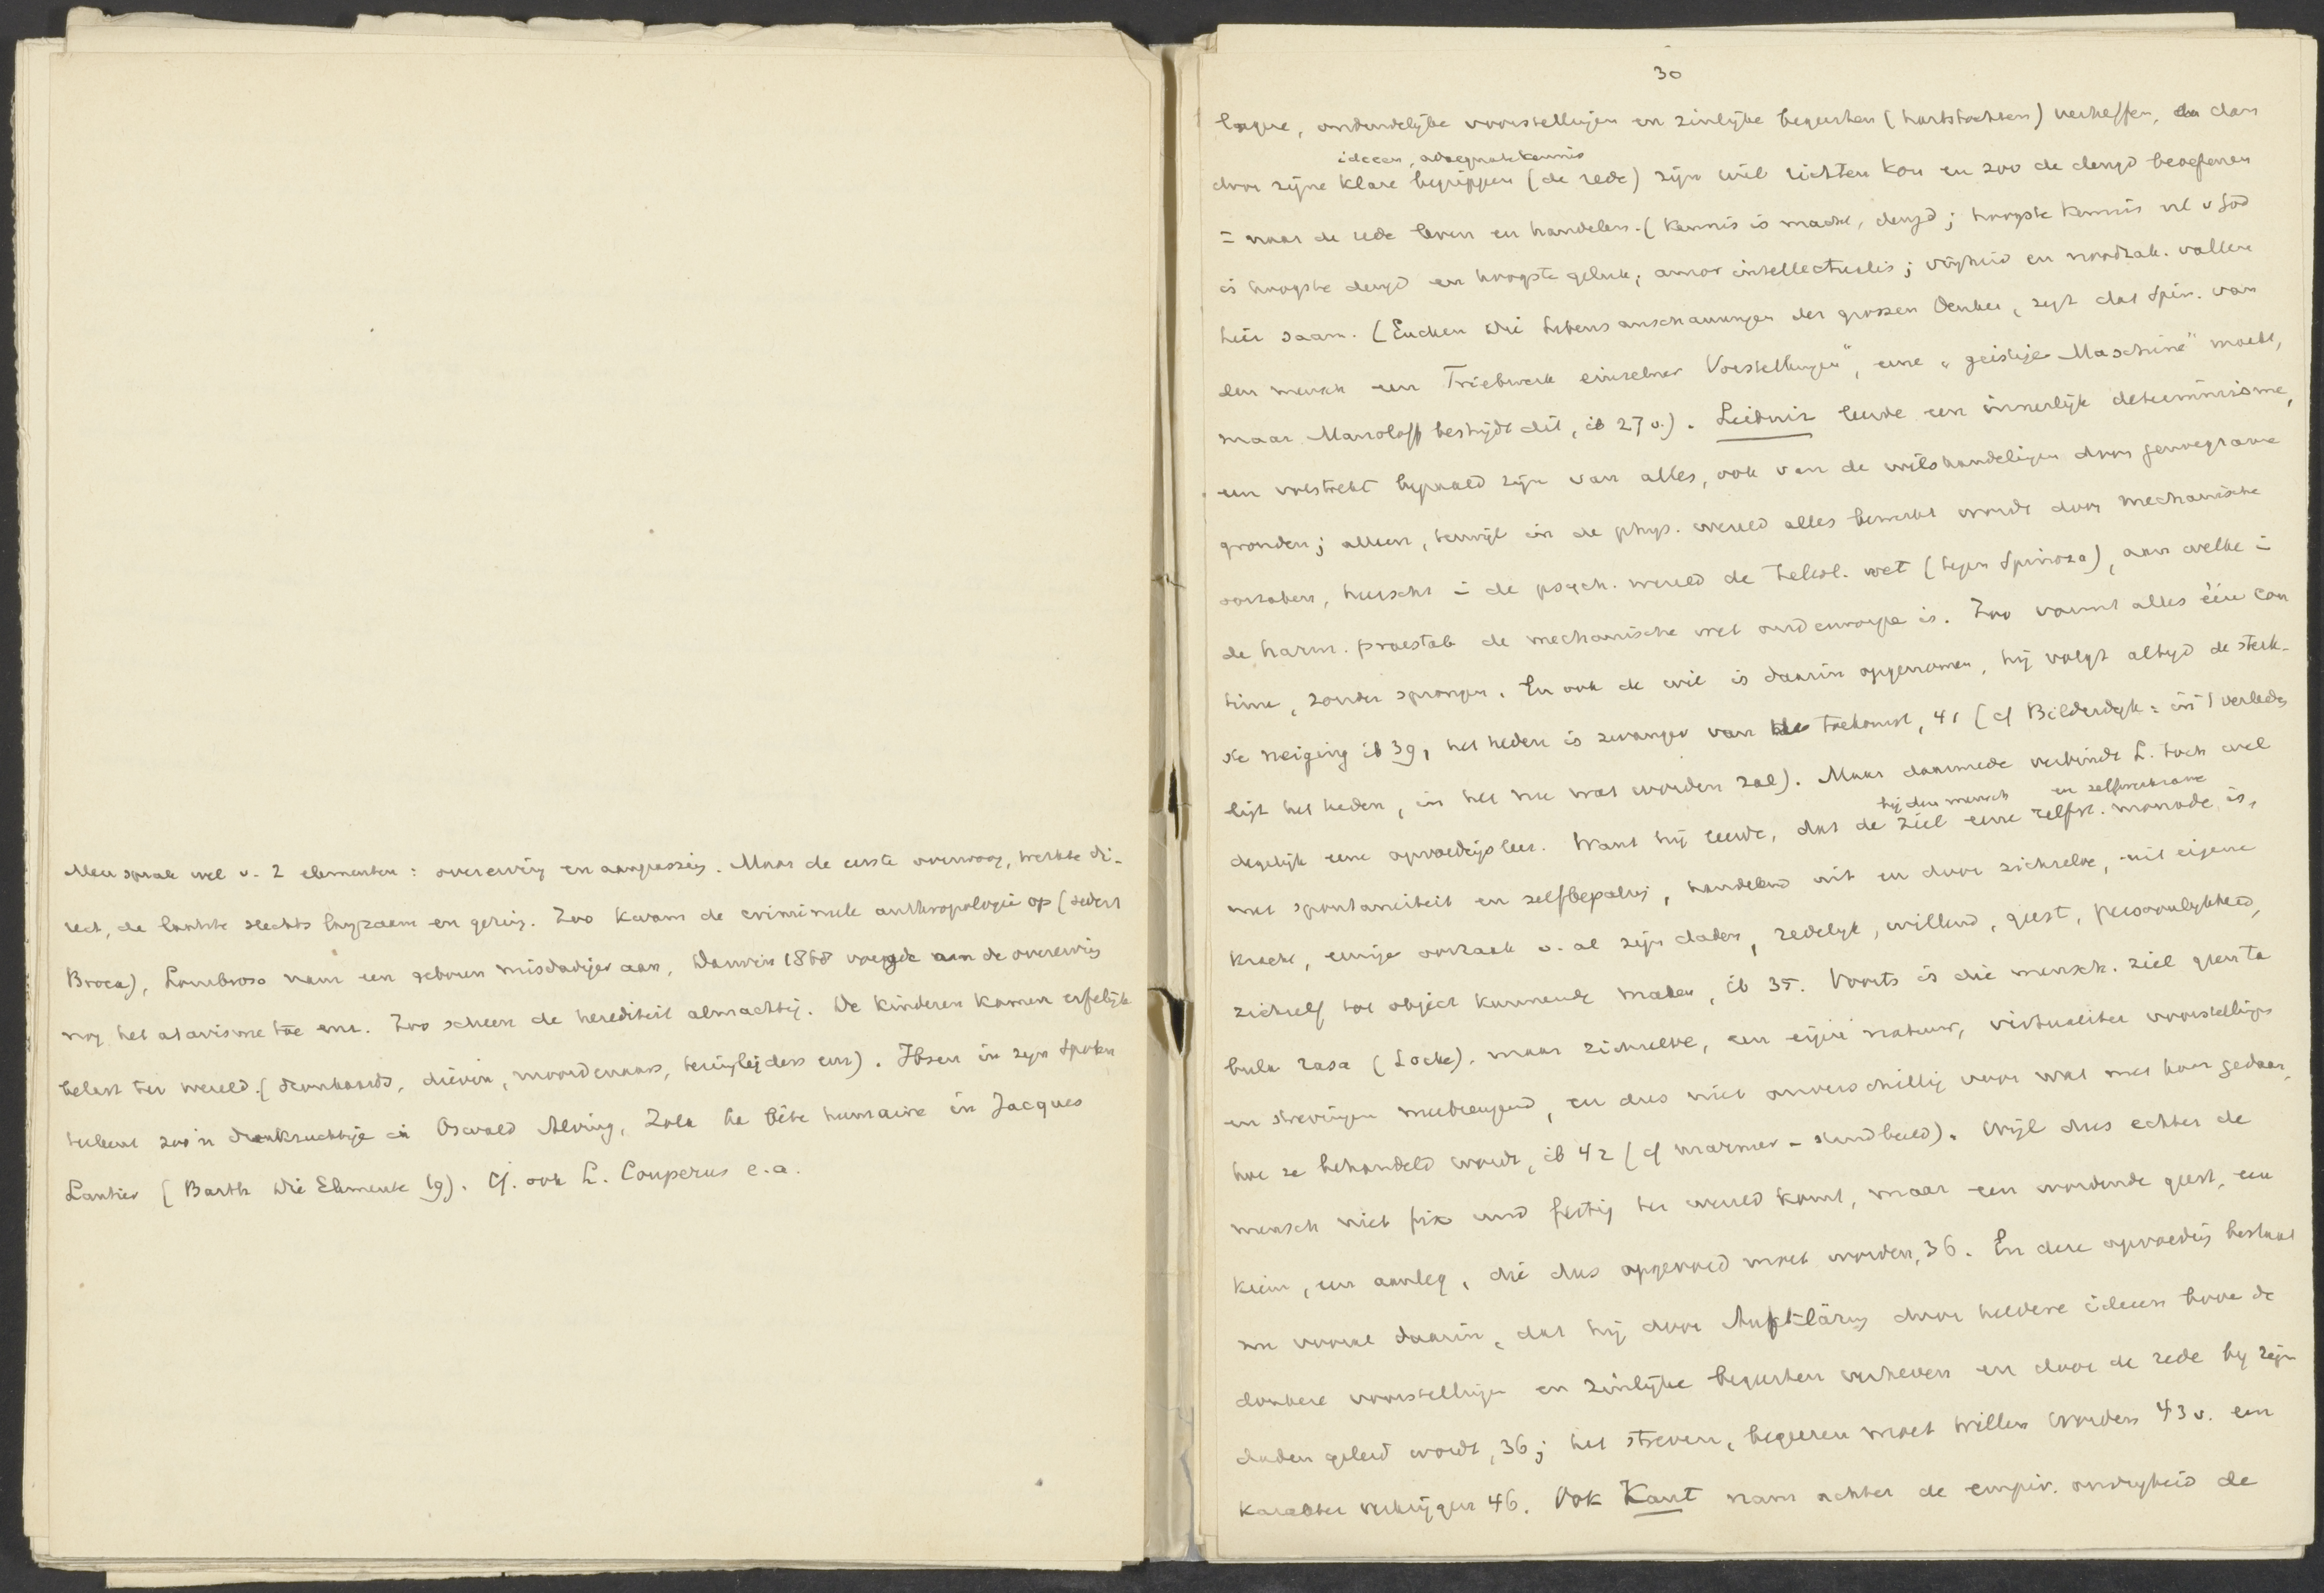 Men sprak wel v. 2 elementen: overerving en aanpassing. Maar de eerste overwoog, werkte di-
rect, de laatste slechts langzaam en gering. Zoo kwam de crimineele anthropologie op (sedert
Broca), Lombroso nam een geboren misdadiger aan, Darwin 1868 voegde aan de overerving
nog het atavisme toe enz. Zoo scheen de herediteit almachtig. De kinderen komen erfelijk
belast ter wereld. (dronkaards, dieven, moordenaars, enz). Ibsen in zijn Spoken
teekent zoo'n drankzuchtige in Osvald Alving, Zola La bête humaine in Jacques
Lantier (Barth Die Elemente 19). Cf. ook L. Couperus e.a.
30
lagere, onduidelijke voorstellingen en zinlijke begeerten (hartstochten) verheffen, en dan
ideeen, adaequate kennis
door zijne klare begrippen (de rede) zijn wil richten kon en zoo de deugd beoefenen
= naar de rede leven en handelen. (Kennis is macht, deugd; hoogste kennis nl v God
is hoogste deugd en hoogste geluk; amor intellectualis; vrijheid en noodzak. vallen
hier saam. (Eucken Die Lebensanschauungen der grossen Denker, zegt dat Spin. van
den mensch een Triebwerk einzelner Vorstellungen", eine "geistige Maschine" maakt,
maar bestrijdt dit, ib 27 v.). Leibniz leerde een innerlijk determinisme,
een volstrekt bepaald zijn van alles, ook van de wilshandelingen door genoegzame
gronden; alleen, terwijl in de phys. wereld alles bewerkt wordt door mechanische
oorzaken, heerscht in de psych. wereld de teleol. wet (tegen Spinoza), aan welke in
de harm. praestab de mechanische wet onderworpen is. Zoo vormt alles één con
tinue, zonder sprongen. En ook de wil is daarin opgenomen, hij volgt altijd de sterk-
ste neiging ib 39, het heden is zwanger van de toekomst, 41 (cf Bilderdijk: in 't verleden
ligt het heden, in het nu wat worden zal). Maar daarmede verbindt L. toch wel
bij den mensch en zelfbewuste
degelijk eene opvoedingsleer. Want hij leerde, dat de ziel eene zelfst. monade is,
met spontaneiteit en zelfbepaling, handelend uit en door zichzelve, uit eigene
kracht, eenige oorzaak v. al zijn daden, redelijk, willend, geest, persoonlijkheid,
zichzelf tot object kunnende maken, ib 35. Voorts is die mensch. ziel geen ta
bula rasa (Locke), maar zichzelve, een eigene natuur, virtualiter voorstellingen
en strevingen meebrengend, en dus niet onverschillig voor wat met haar gedaan,
hoe ze behandeld wordt, ib 42 (cf marmer - standbeeld). Wijl dus echter de
mensch niet fix und fertig ter wereld komt, maar een wordende geest, een
kiem, een aanleg, die dus opgevoed moet worden, 36. En deze opvoeding bestaat
nu vooral daarin, dat hij door Aufklärung door heldere ideeen boven de
donkere voorstellingen en zinlijke begeerten verheven en door de rede bij zijn
daden geleid wordt, 36; het streven, begeeren moet willen worden 43 v. een
karakter verkrijgen 46. Ook Kant nam achter de empir. onvrijheid de